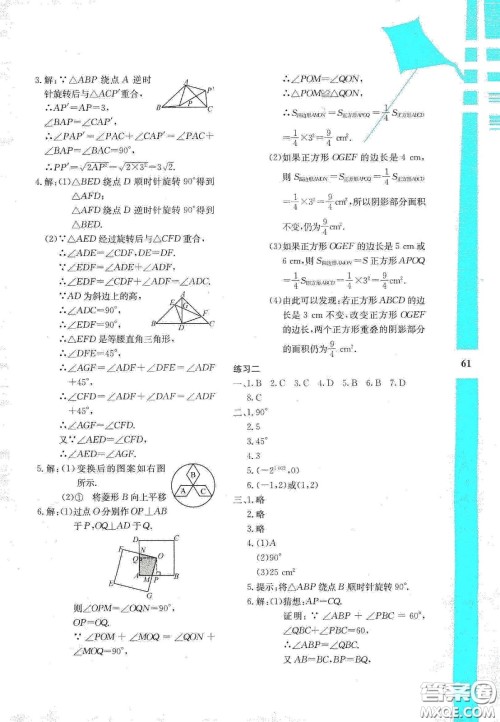 3.解:∵△ABP绕点A逆时
针旋转后与△ACP′重合,
∴AP′=AP=3,
∠BAP=∠CAP′,
∴∠PAP′=∠PAC+∠CAP′=∠PAC+
∠BAP=∠BAC=90°,
∴PP′=√2AP²=√2×3²=3√2.
4.解:(1)△BED绕点D顺时针旋转90°得到
△AFD;
△AFD绕点D逆时针旋转90°得到
△BED.
(2)∵△AED经过旋转后与△CFD重合,
∴∠ADE=∠CDF,DE=DF.
∵∠EDF=∠ADE+∠ADF,
∴∠EDF=∠CDF+∠ADF=∠ADC.
∵AD为斜边上的高,
∴∠ADC=90°.
∴∠EDF=90°.
∴△EFD是等腰直角三角形.
∴∠AGF=∠ADF+∠DFE=∠ADF
+45°,
∴∠AGF=∠ADF+∠DFE=∠DAF
+45°.
∴∠AGF=∠CDF.
又∵∠AED=∠CFD,
∴∠AED=∠AGF.
5.解:(1)变换后的图案如右图
所示.
(2)① 将菱形B向上平移
6.解:(1)过点O分别作OP⊥AB
于P,OQ⊥AD于Q.
则∠OPM=∠OQN=90°,
OP=OQ.
∵∠POM+∠MOQ=∠QON+
∠MOQ=90°,
∴∠POM=∠QON,
∴△POM≌△QON,
∴S四边形AMON=S正方形APOQ=1/4S正方形ABCD
=1/4×3²=9/4 cm².
(2)如果正方形OGEF的边长是4 cm,
则S四边形AMON=S正方形APOQ=1/4S正方形ABCD
=1/4×3²=9/4 cm²,所以阴影部分面积
不变,仍为9/4 cm².
(3)如果正方形OGEF的边长是5 cm或
6 cm,则S四边形AMON=S正方形APOQ
=1/4S正方形ABCD=1/4×3²=9/4 cm².
(4)由此可以发现:若正方形ABCD的边
长是3 cm不改变,正方形OGEF的边
长改变,两个正方形重叠的阴影部分
的面积不变,仍为9/4 cm².
练习二
一、1.B 2.C 3.C 4.D 5.D 6.B 7.D
8.C
二、1.90°
2.5
3.45°
4.3
6.(-1,2)或(1,2)
三、1.略
3.略
4.(1)A
(2)90°
(3)25 cm²
5.提示:将△ABP绕点B顺时针旋转90°.
6.解:(1)猜想:AP=CQ.
证明:∵∠ABP+∠PBC=60°
∠QBC+∠PBC=60°,
∴∠ABP=∠QBC.
又AB=BC,BP=BQ,
61
答案圈
MXQE.COM